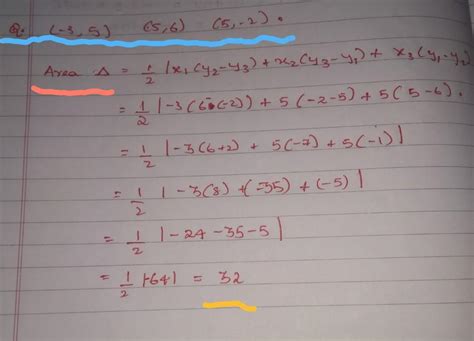 Q. (-3, 5) (5, 6) (5, -2).
Area Δ = 1/2 |x₁(y₂-y₃) + x₂(y₃-y₁) + x₃(y₁-y₂)
= 1/2 |-3(6-(-2)) + 5(-2-5) + 5(5-6).
= 1/2 |-3(6+2) + 5(-7) + 5(-1)|
= 1/2 |-3(8) + (-35) + (-5)|
= 1/2 |-24 -35 -5|
= 1/2 |-64| = 32